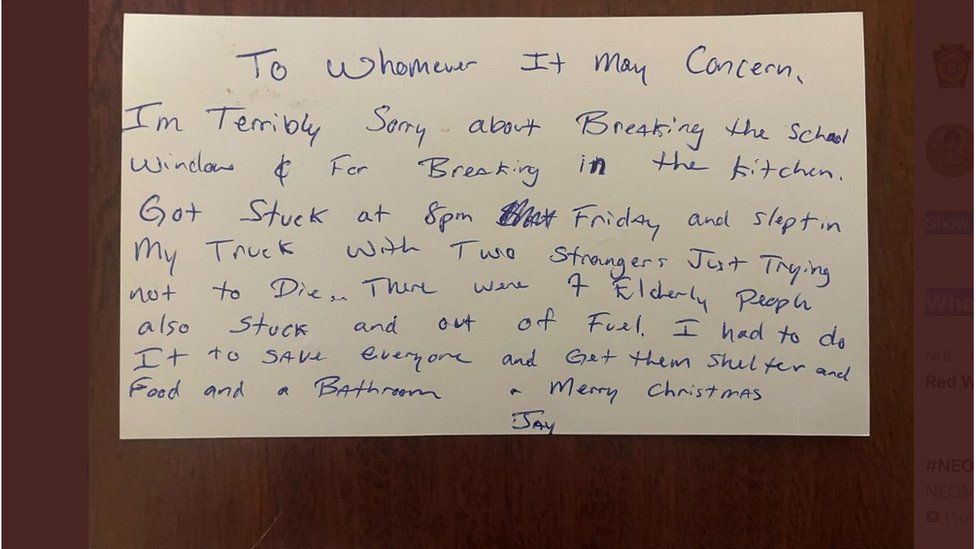 To Whomever It May Concern,
I'm Terribly Sorry about Breaking the school
Window & For Breaking in the Kitchen.
Got Stuck at 8pm Friday and slept in
My Truck with Two Strangers Just Trying
not to Die... There were 7 Elderly People
also Stuck and out of Fuel. I had to do
It to SAVE everyone and Get them shelter and
Food and a Bathroom. Merry Christmas
JAY
Show
Wha
NHL
Red W
#NEO
NEOM
Pro